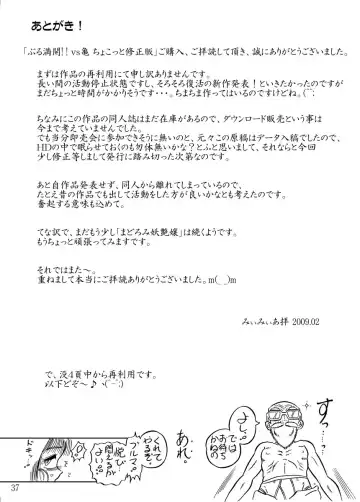 あとがき！
「ぶる満開!! vs亀 ちょこっと修正版」ご購入、ご拝読して頂き、誠にありがとうございました。
まずは作品の再利用にて申し訳ありませんです。
長い間の活動停止状態ですし、そろそろ復活の新作発表！といきたかったのですが
まだちょっと時間がかかりそうです・・・。ちまちま作ってはいるのですけどね。(￣;
ちなみにこの作品の同人誌はまだ在庫があるので、ダウンロード販売という事は
今まで考えていませんでした。
でも当分即売会に参加できそうに無いのと、元々この原稿はデータ入稿でしたので、
HDの中で眠らせておくのも勿体無いかな？とふと思いまして、それならと今回
少し修正等しまして発行に踏み切った次第なのです。
あと自作品発表せず、同人から離れてしまっているので、
たとえ昔の作品でも出して活動をした方が良いかなとも考えたのです。
奮起する意味も込めて。
てな訳で、まだもう少し「まどろみ妖艶嬢」は続くようです。
もうちょっと頑張ってみますです。
それではまた～。
重ねまして本当にご拝読ありがとうございました。m(_ _)m
みぃみぃあ拝 2009.02
で、没4頁中から再利用です。
以下どぞ～♪ヽ(￣-￣;)
すっ・・・
では
お待ち
かねの
あれ。
くれて
やるぞ。
ブルマ
悦び
悶えるが
よい。
ドキッ
37